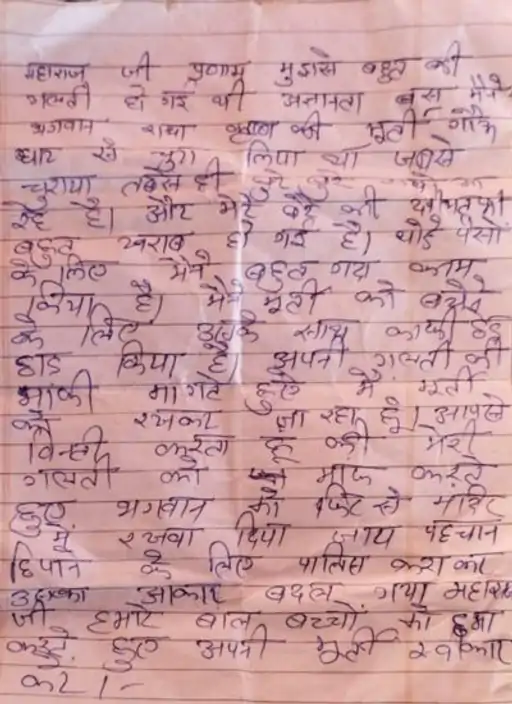 महाराज जी प्रणाम मुझसे बहुत बडी
गलती हो गई थी अज्ञानता बस मैने
भगवान राधा कृष्ण की मूर्ती गौऊ
घाट से चुरा लिया था जबसे
चुराया तबसे ही बुरे
रहे है। और मेरे बेटे की
बहुत खराब हो गई है। थोडे पैसो
के लिए मैने बहुत गंदा काम
किया है। मैने मूर्ती को बेचने
के लिए उसके साथ काफी छेड़
छाड़ किया है। अपनी गलती की
माफी मागते हुए मै मूर्ती
को रखकर जा रहा हूं। आपसे
विनती करता हू की मेरी
गलती को माफ करते
हुए भगवान को फिर से मंदिर
में रखवा दिया जाय पहचान
छिपाने के लिए पालिस करा कर
उसका आकार बदला गया महाराज
जी हमारे बाल बच्चों को क्षमा
करते हुए अपनी मूर्ती स्वीकार
करे।-